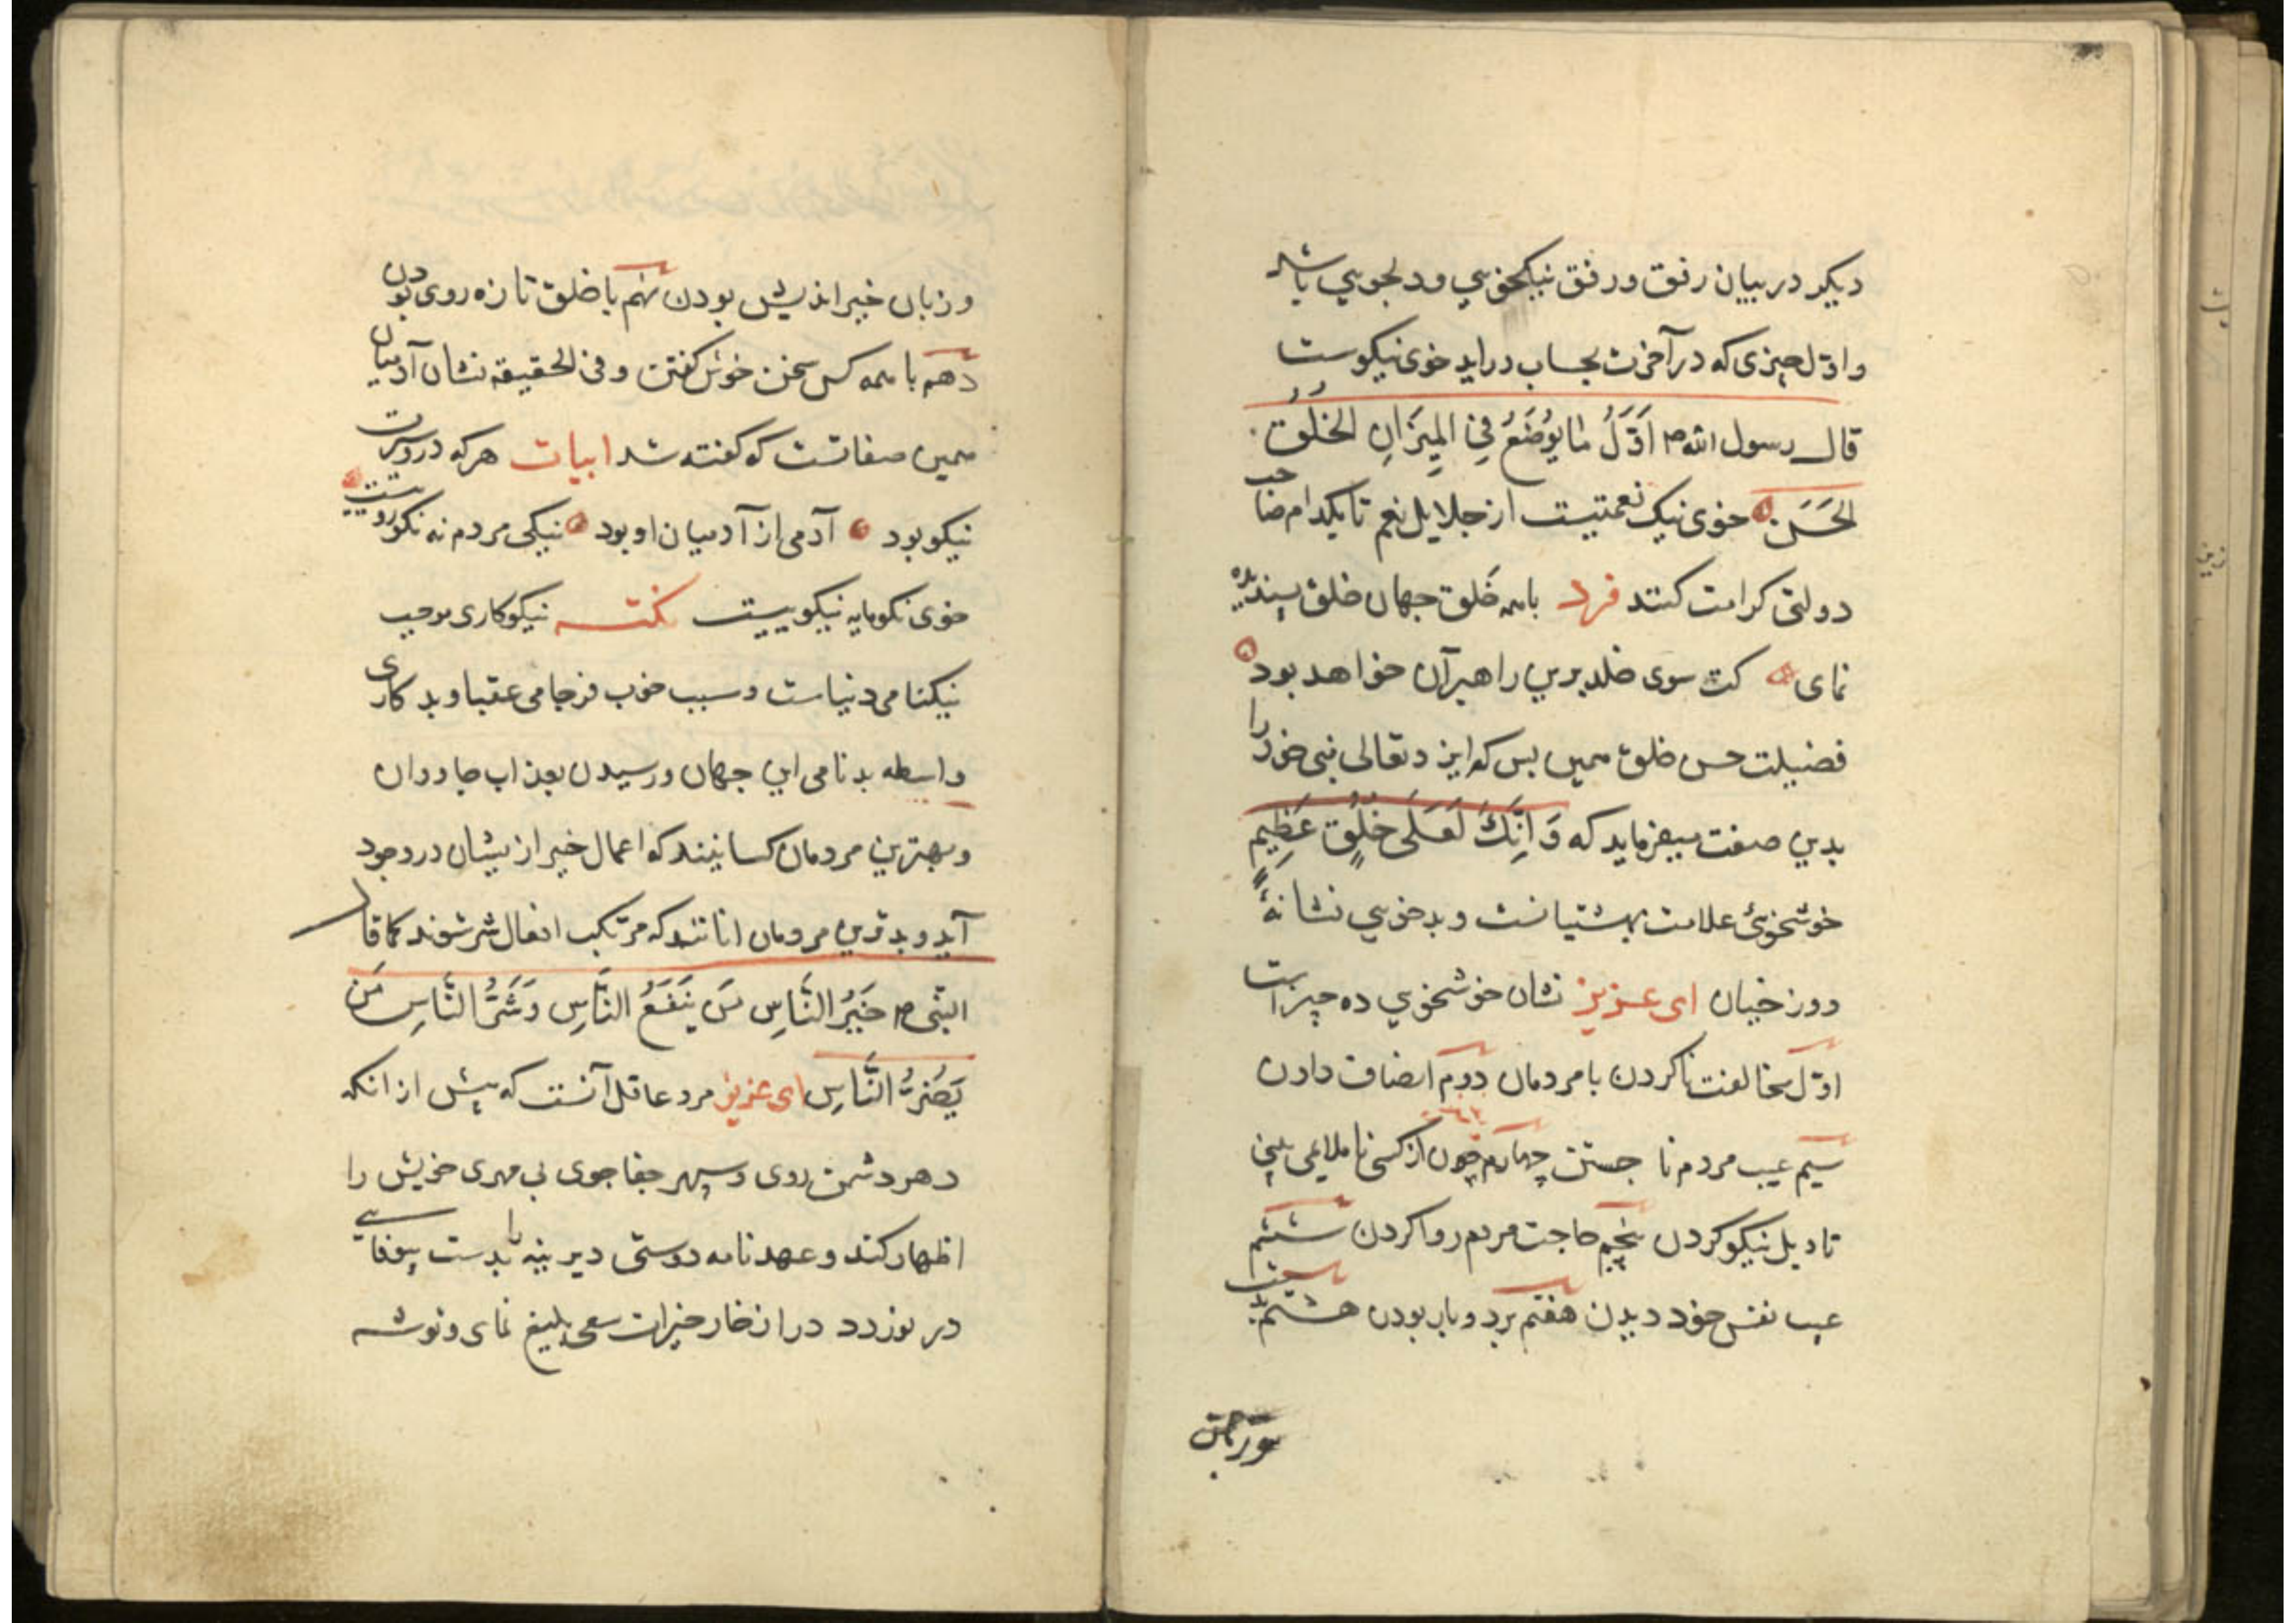 دیکر در بیان رفق و رفق نیکخویی و دلجویی باشد
و اوّل چیزی که در آخرت بحساب دراید خوی نیکوست
قال رسول الله ص اَوَّلُ ما یُوضَعُ فِي المِیزَانِ الخُلُقُ
الحَسَن خوی نیک نعمتیست از جلایل نعم تا بکدام صاحب
دولتی کرامت کنند فرد با همه خَلق جهان خلق پسندیده
نمای کت سوی خلد برین راهبر آن خواهد بود
فضیلت حسن خلق همین بس که ایزد تعالی نبی خود را
بدین صفت میفرماید که وَ اِنَّكَ لَعَلَی خُلُقٍ عَظِیمٍ
خوشخوئی علامت بهشتیانست و بدخویی نشانهٔ
دوزخیان ای عزیز نشان خوشخویی ده چیز است
اوّل مخالفت ناکردن با مردمان دوم انصاف دادن
سیم عیب مردم نا جستن چهارم چون از کسی نا ملایمی بینی
تاویل نیکو کردن پنجم حاجت مردم روا کردن ششم
عیب نفس خود دیدن هفتم برد و بار بودن هشتم
و زبان خیر اندیش بودن نهم با خلق تازه روی بودن
دهم با همه کس سخن خوش کفتن و فی الحقیقه نشان آدمیان
همین صفاتست که کفته شد ابیات هر که درو سیرت
نیکو بود آدمی از آدمیان او بود نیکی مردم نه نکو روییست
خوی نکو مایه نیکوییست نکته نیکوکاری موجب
نیکنامی دنیاست و سبب خوب فرجامی عقبا و بدکاری
واسطه بدنامی این جهان و رسیدن بعذاب جاودان
و بهترین مردمان کسانیند که اعمال خیر ازیشان در وجود
آید و بدترین مردمان انانند که مرتکب افعال شر شوند کما قال
النّبی ص خَیرُ النَّاسِ مَن یَنفَعُ النَّاسِ وَ شَرُّ النَّاسِ مَن
یَضُرُّ النَّاسِ ای عزیز مرد عاقل آنست که پیش از انکه
دهر دشمن روی و سپهر جفا جوی بی مهری خویش را
اظهار کند و عهد نامه دوستی دیرینه را بدست بیوفایی
در نوردد در ادخار خیرات سعی بلیغ نمای و توشه